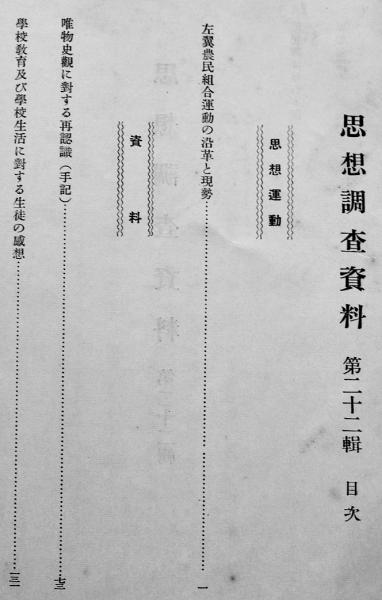 思想調査資料 第二十二輯 目次
思想運動
左翼農民組合運動の沿革と現勢……………………一
資料
唯物史觀に對する再認識（手記）……………………七三
學校敎育及び學校生活に對する生徒の感想……………………一三一